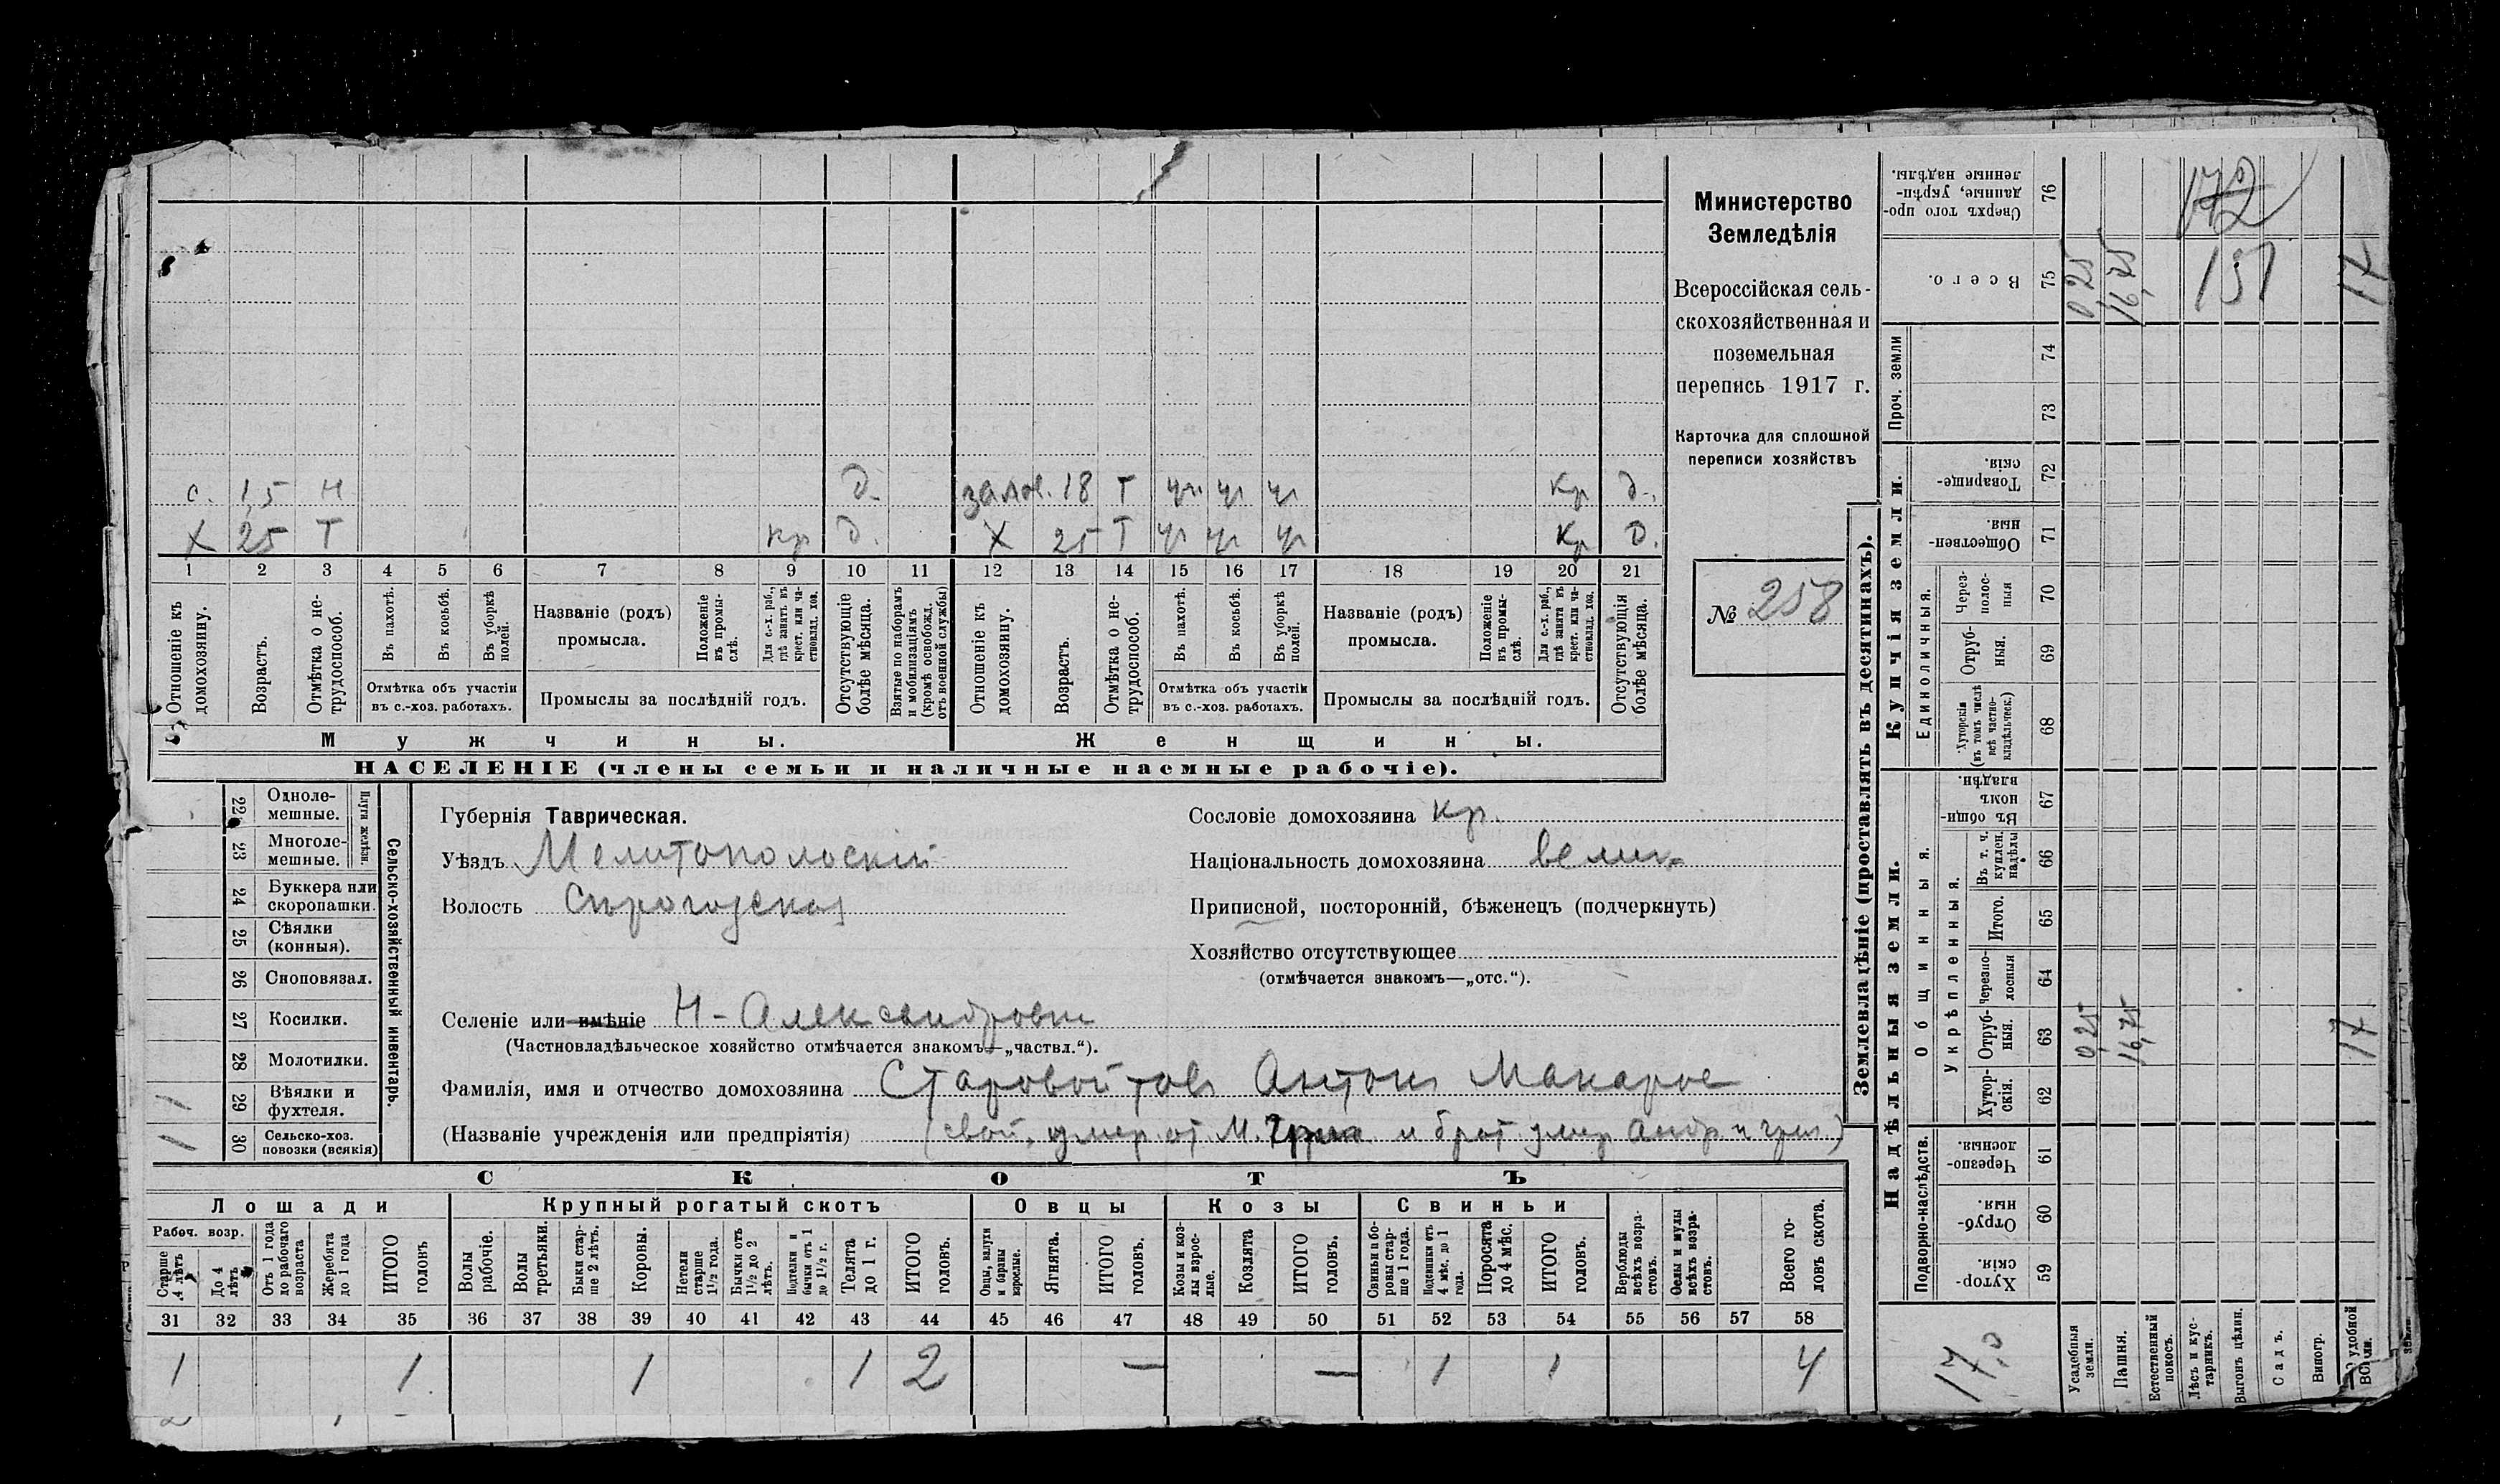 Министерство
Земледѣлія
Всероссійская сель-
скохозяйственная и
поземельная
перепись 1917 г.
Карточка для сплошной
переписи хозяйствъ
№ 258
с. 1,5 Н д. 18 Т Кр д.
X 25 Т Кр д. X 25 Т Кр д.
1 2 3 4 5 6 7 8 9 10 11 12 13 14 15 16 17 18 19 20 21
Отношеніе къ домохозяину.
Возрастъ.
Отмѣтка о не-трудоспособ.
Въ пахотѣ.
Въ косьбѣ.
Въ уборкѣ полей.
Отмѣтка объ участіи
въ с.-хоз. работахъ.
Названіе (родъ)
промысла.
Положеніе въ промы-слѣ.
Для с.-х. раб., гдѣ занятъ въ крест. или ча-стновлад. хоз.
Промыслы за послѣдній годъ.
Отсутствующіе болѣе мѣсяца.
Взятые по наборамъ и мобилизаціямъ (кромѣ освобожд. отъ военной службы)
Отношеніе къ домохозяину.
Возрастъ.
Отмѣтка о не-трудоспособ.
Въ пахотѣ.
Въ косьбѣ.
Въ уборкѣ полей.
Отмѣтка объ участіи
въ с.-хоз. работахъ.
Названіе (родъ)
промысла.
Положеніе въ промы-слѣ.
Для с.-х. раб., гдѣ занятъ въ крест. или ча-стновлад. хоз.
Промыслы за послѣдній годъ.
Отсутствующія болѣе мѣсяца.
Мужчины. Женщины.
НАСЕЛЕНІЕ (члены семьи и наличные наемные рабочіе).
Сельско-хозяйственный инвентарь.
Плуги желѣзн.
22 Одноле-мешные.
23 Многоле-мешные.
24 Буккера или скоропашки.
25 Сѣялки (конныя).
26 Сноповязал.
27 Косилки.
28 Молотилки.
29 Вѣялки и фухтеля.
30 Сельско-хоз. повозки (всякія)
Губернія Таврическая.
Уѣздъ Мелитопольскій
Волость Сѣрогозская
Сословіе домохозяина кр.
Національность домохозяина велик.
Приписной, посторонній, бѣженецъ (подчеркнуть)
Хозяйство отсутствующее
(отмѣчается знакомъ—„отс.“).
Селеніе или имѣніе Н-Александровка
(Частновладѣльческое хозяйство отмѣчается знакомъ—„частвл.“).
Фамилія, имя и отчество домохозяина Старовойтовъ Антонъ Макаров
(Названіе учрежденія или предпріятія) и брат
СКОТЪ
Лошади Крупный рогатый скотъ Овцы Козы Свиньи
Рабоч. возр.
Старше 4 лѣтъ
До 4 лѣтъ
Отъ 1 года до рабочаго возраста
Жеребята до 1 года
ИТОГО головъ
Волы рабочіе.
Волы третьяки.
Быки стар-ше 2 лѣтъ.
Коровы.
Нетели старше 1½ года.
Бычки отъ 1½ до 2 лѣтъ.
Подтелки и бычки отъ 1 до 1½ г.
Телята до 1 г.
ИТОГО головъ.
Овцы, валухи и бараны взрослые.
Ягнята.
ИТОГО головъ.
Козы и коз-лы взрос-лые.
Козлята
ИТОГО головъ.
Свиньи и бо-ровы стар-ше 1 года.
Подсвинки отъ 4 мѣс. до 1 года.
Поросята до 4 мѣс.
ИТОГО головъ.
Верблюды всѣхъ возра-стовъ.
Ослы и мулы всѣхъ возра-стовъ.
Всего го-ловъ скота.
31 32 33 34 35 36 37 38 39 40 41 42 43 44 45 46 47 48 49 50 51 52 53 54 55 56 57 58
1 1 1 1 2 — — 1 1 4
Землевладѣніе (проставлять въ десятинахъ).
Надѣльныя земли. Купчія земли.
Подворно-наслѣдств.
Общинныя.
Укрѣпленныя.
Единоличныя.
Проч. земли
Хутор-скія. 59
Отруб-ныя. 60
Черезпо-лосныя. 61
Хутор-скія. 62
Отруб-ныя. 63 0,25 16,75 17
Черезпо-лосныя 64
Итого. 65
Въ т. ч. куплен. надѣлы 66
Въ общин-номъ владѣн. 67
Хуторскія (въ томъ числѣ всѣ частно-владѣльческ.) 68
Отруб-ныя. 69
Через-полос-ныя 70
Обществен-ныя. 71
Товарище-скія. 72
73
74
Всего. 75 0,25 16,75 151 17
Сверхъ того про-данные, укрѣп-ленные надѣлы. 76
Усадебныя земли.
Пашня.
Естественный покосъ.
Лѣсъ и кус-тарникъ.
Выгонъ цѣлин.
Садъ.
Виногр.
удобной